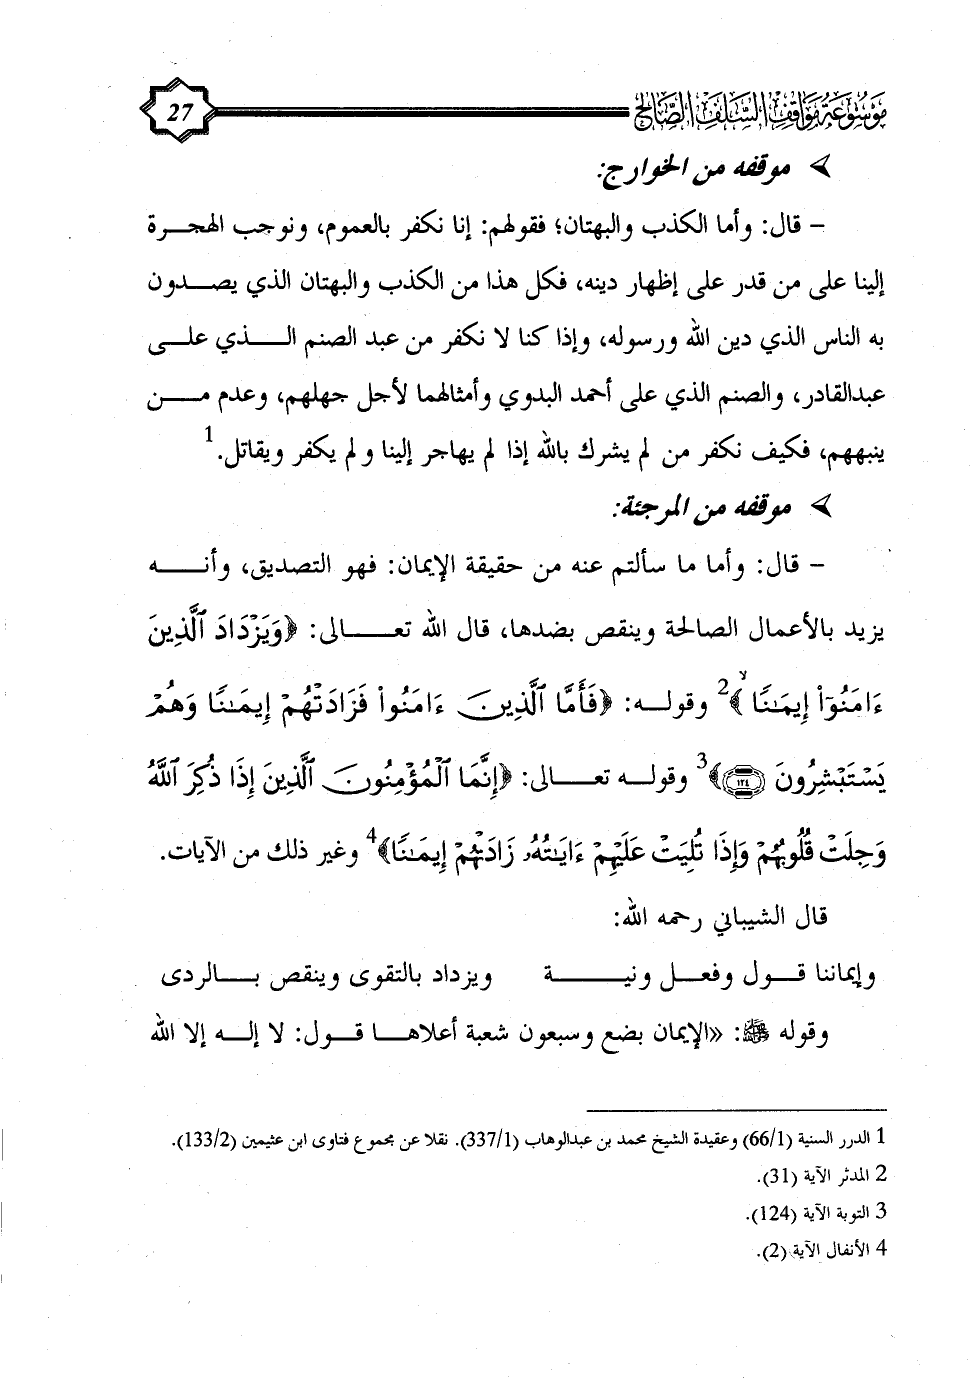 موسوعة مواقف السلف الصالح
27
موقفه من الخوارج:
– قال: وأما الكذب والبهتان؛ فقولهم: إنا نكفر بالعموم، ونوجب الهجرة
إلينا على من قدر على إظهار دينه، فكل هذا من الكذب والبهتان الذي يصدون
به الناس الذي دين الله ورسوله، وإذا كنا لا نكفر من عبد الصنم الذي على
عبدالقادر، والصنم الذي على أحمد البدوي وأمثالهما لأجل جهلهم، وعدم من
ينبههم، فكيف نكفر من لم يشرك بالله إذا لم يهاجر إلينا ولم يكفر ويقاتل.1
موقفه من المرجئة:
– قال: وأما ما سألتم عنه من حقيقة الإيمان: فهو التصديق، وأنه
يزيد بالأعمال الصالحة وينقص بضدها، قال الله تعالى: ﴿وَيَزْدَادَ ٱلَّذِينَ
ءَامَنُوٓاْ إِيمَـٰنًا ۙ﴾2 وقوله: ﴿فَأَمَّا ٱلَّذِينَ ءَامَنُواْ فَزَادَتْهُمْ إِيمَـٰنًا وَهُمْ
يَسْتَبْشِرُونَ ١٢٤﴾3 وقوله تعالى: ﴿إِنَّمَا ٱلْمُؤْمِنُونَ ٱلَّذِينَ إِذَا ذُكِرَ ٱللَّهُ
وَجِلَتْ قُلُوبُهُمْ وَإِذَا تُلِيَتْ عَلَيْهِمْ ءَايَـٰتُهُۥ زَادَتْهُمْ إِيمَـٰنًا﴾4 وغير ذلك من الآيات.
قال الشيباني رحمه الله:
وإيماننا قول وفعل ونية ويزداد بالتقوى وينقص بالردى
وقوله ﷺ: «الإيمان بضع وسبعون شعبة أعلاها قول: لا إله إلا الله
1 الدرر السنية (66/1) وعقيدة الشيخ محمد بن عبدالوهاب (337/1). نقلا عن مجموع فتاوى ابن عثيمين (133/2).
2 المدثر الآية (31).
3 التوبة الآية (124).
4 الأنفال الآية (2).